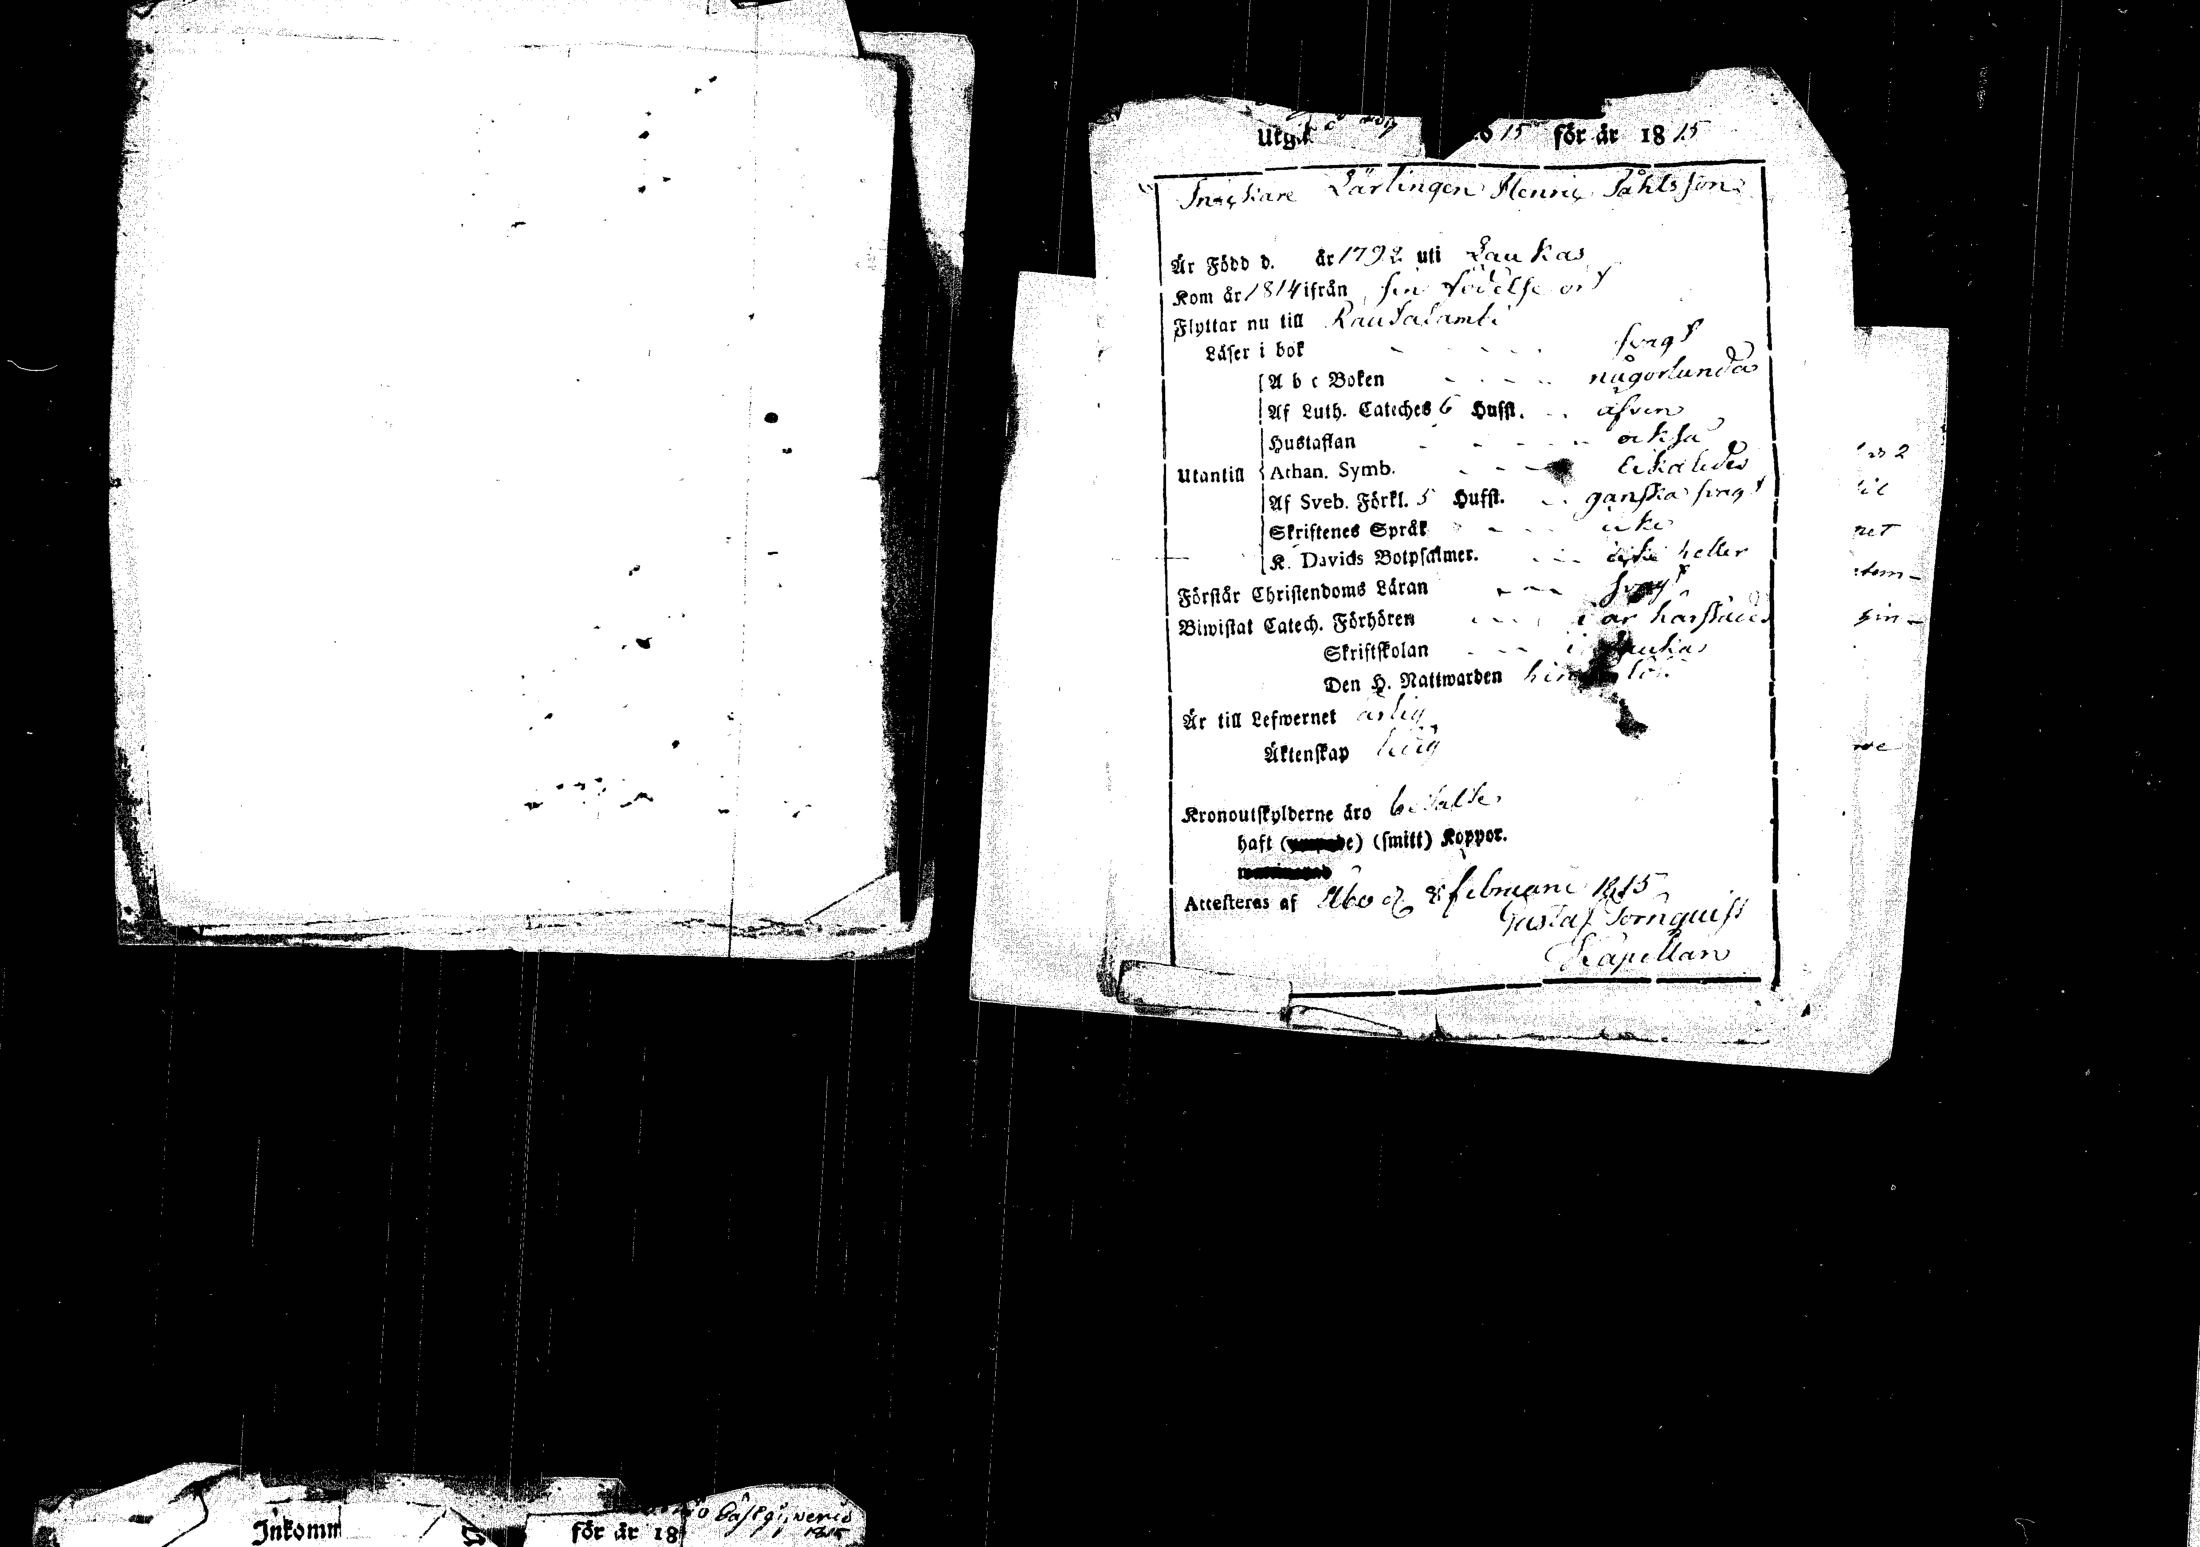 Utgi No 15 för år 1815
Snickare Lärlingen Henric Påhlsson
Är Född d. år 1792 uti Laukas
Kom år 1814 ifrån sin födelse ort
Flyttar nu till Rautalambi
Läser i bok - - - - svagt
A b c Boken - - - - någorlunda
Af Luth. Cateches 6 Hufst. - - äfven
Hustaflan - - - - - också
Utantill Athan. Symb. - - - likaledes
Af Sveb. Förkl. 5 Hufst. - - ganska svagt
Skriftenes Språk - - - icke
K. Davids Botpsalmer. - - - icke heller
Förstår Christendoms Läran - - - svagt
Biwistat Catech. Förhören - - - i år härstädes
Skriftskolan - - - i Laukas
Den H. Nattwarden
Är till Lefwernet ärlig
Äktenskap ledig
Kronoutskylderne äro betalte
haft ( e) (smitt) Koppor.
Attesteras af Åbo d. 8 februarii 1815
Gustaf Törnquist
Kapellan
Inkomm för år 18